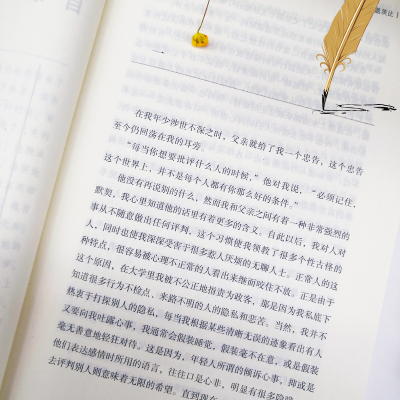 在我年少涉世不深之时，父亲就给了我一个忠告，这个忠告
至今仍回荡在我的耳旁。
“每当你想要批评什么人的时候，”他对我说，“必须记住，
这个世界上，并不是每个人都有你那么好的条件。”
他没有再说别的什么，然而我和父亲之间有着一种非常强烈的
默契，我心里知道他的话里有着更多的含义。自此以后，我对人对
事从不随意做出任何评判，这个习惯使我领教了很多个性古怪的
人，同时也使我深深受害于很多惹人厌烦的无聊人士。正常人的这
种特点，很容易被心理不正常的人看出来继而咬住不放。正是由于
这个原因，在大学里我被不公正地指责为政客，那是因为我私底下
知道很多行为不检点、来路不明的人的隐私和悲苦。当然，我并不
热衷于打探别人的隐私，每当我根据某些清晰无误的迹象看出有人
又要向我吐露心事，我通常会假装睡觉，假装毫不在意，或是假装
毫无善意地轻狂对待。这是因为，年轻人所谓的倾诉心事，抑或是
他们表达感情时所用的语言，往往口是心非，明显有很多隐
去评判别人则意味着无限的希望。直到现在